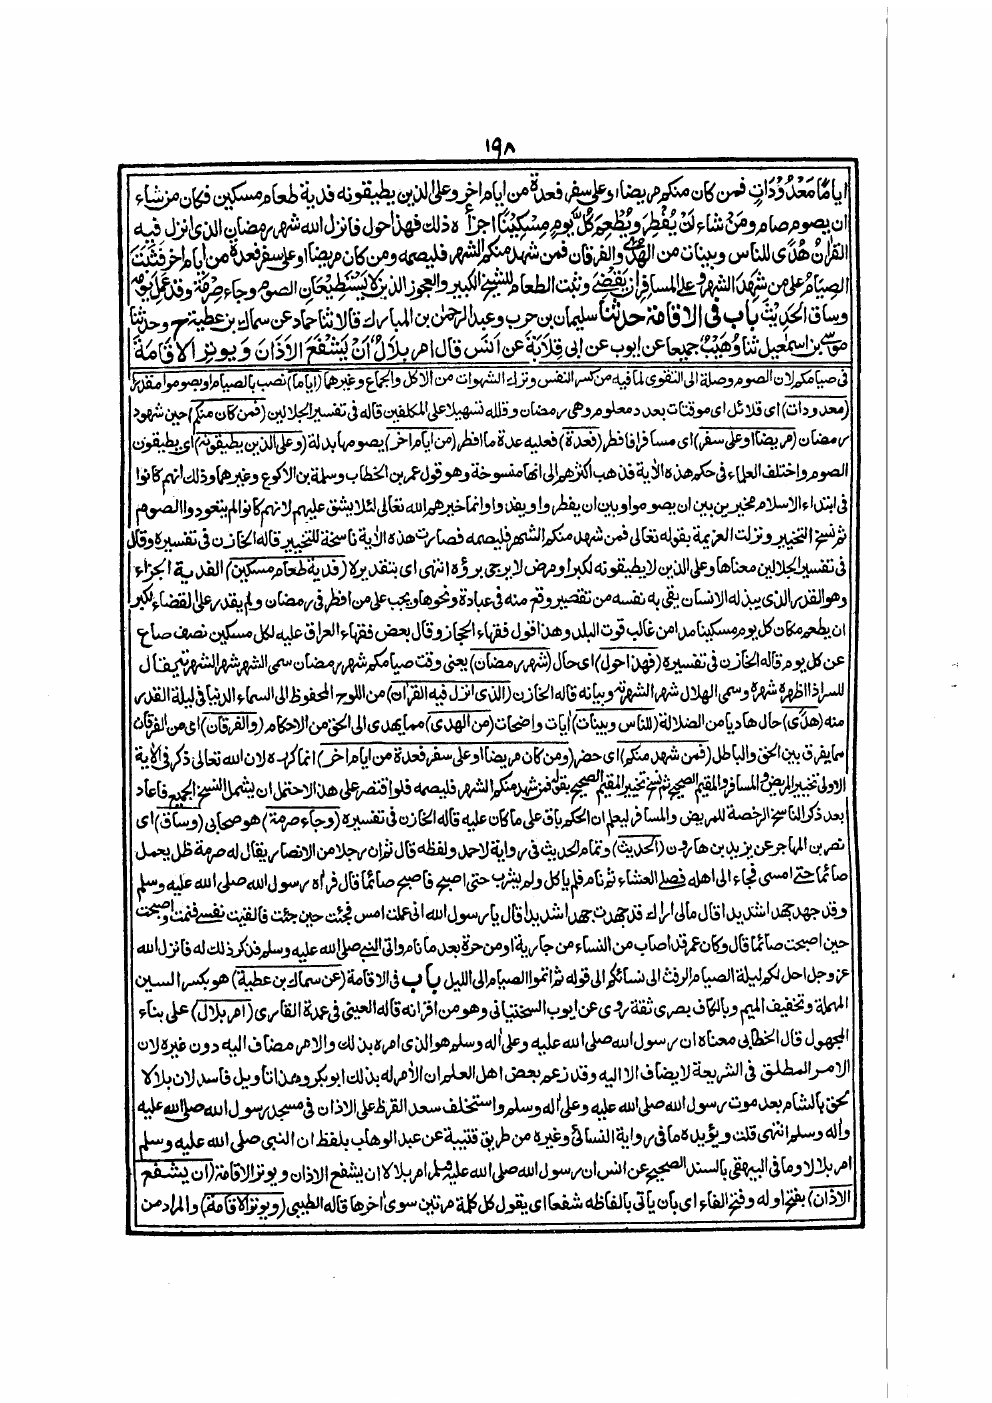 ١٩٨
اياما مَعْدُوْدَاتٍ فمن كان منكم مريضا او على سفر فعدة من ايام اخر وعلى الذين يطيقونه فدية طعام مسكين فكان من شاء
ان يصوم صام ومَنْ شاء اَنْ يُفْطِرَ ويُطْعِمَ كُلَّ يومٍ مِسْكِيْنًا اجزأه ذلك فهذا حول فانزل الله شهر رمضان الذى انزل فيه
القراٰنُ هُدًى للناس وبينات من الهدى والفرقان فمن شهد منكم الشهر فليصمه ومن كان مريضا او على سفر فعدة من ايام اخر فثَبَتَ
الصيامُ على من شَهِدَ الشهرَ وعلى المسافر ان يَقْضِىَ وثبت الطعام للشيخ الكبير والعجوز الذين لا يَسْتَطِيْعَانِ الصوم وجاء صِرْمَةُ وقد عَمِلَ يومَه
وساق الحديثَ باب فى الاقامة حدثنا سليمان بن حرب وعبد الرحمٰن بن المبارك قالا ثنا حماد عن سماك بن عطية ح وحدثنا
موسى بن اسمٰعيل ثنا وُهَيْبٌ جميعا عن ايوب عن ابى قِلَابَةَ عن اَنَس قال امر بلالٌ اَنْ يَشْفَعَ الاَذَانَ ويوتر الاقامَةَ
فى صيامكم لان الصوم وصلة الى التقوى لما فيه من كسر النفس وترك الشهوات من الاكل والجماع وغيرهما (اياما) نصب بالصيام او بصوموا مقدرا
(معدودات) اى قلائل اى موقتات بعدد معلوم وهى رمضان وقلله تسهيلا على المكلفين قاله فى تفسير الجلالين (فمن كان منكم) حين شهود
رمضان (مريضا او على سفر) اى مسافرا فافطر (فعدة) فعليه عدة ما افطر (من ايام اخر) يصومها بدله (وعلى الذين يطيقونه) اى يطيقون
الصوم واختلف العلماء فى حكم هذه الاٰية فذهب اكثرهم الى انها منسوخة وهو قول عمر بن الخطاب وسلمة بن الاكوع وغيرهما وذلك انهم كانوا
فى ابتداء الاسلام مخيرين بين ان يصوموا وبين ان يفطروا ويفدوا وانما خيرهم الله تعالى لئلا يشق عليهم لانهم كانوا لم يتعودوا الصوم
ثم نسخ التخيير ونزلت العزيمة بقوله تعالى فمن شهد منكم الشهر فليصمه فصارت هذه الاٰية ناسخة للتخيير قاله الخازن فى تفسيره وقال
فى تفسير الجلالين معناها وعلى الذين لا يطيقونه لكبر او مرض لا يرجى برؤه انتهى اى بتقدير لا (فدية طعام مسكين) الفدية الجزاء
وهو القدر الذى يبذله الانسان يقى به نفسه من تقصير وقع منه فى عبادة ونحوها ويجب على من افطر فى رمضان ولم يقدر على القضاء لكبر
ان يطعم مكان كل يوم مسكينا مدا من غالب قوت البلد وهذا قول فقهاء الحجاز وقال بعض فقهاء العراق عليه لكل مسكين نصف صاع
عن كل يوم قاله الخازن فى تفسيره (فهذا حول) اى حال (شهر رمضان) يعنى وقت صيامكم شهر رمضان سمى الشهر شهرا لشهرته يقال
للسر اذا اظهره شهره وسمى الهلال شهرا لشهرته وبيانه قاله الخازن (الذى انزل فيه القراٰن) من اللوح المحفوظ الى السماء الدنيا فى ليلة القدر
منه (هدًى) حال هاديا من الضلالة (للناس وبينات) اٰيات واضحات (من الهدى) مما يهدى الى الحق من الاحكام (والفرقان) اى من الفرقان
مما يفرق بين الحق والباطل (فمن شهد منكم) اى حضر (ومن كان مريضا او على سفر فعدة من ايام اخر) انما كرره لان الله تعالى ذكر فى الاٰية
الاولى تخيير المريض والمسافر والمقيم الصحيح ثم نسخ تخيير المقيم الصحيح بقوله فمن شهد منكم الشهر فليصمه فلو اقتصر على هذا الاحتمل ان يشمل النسخ الجميع فاعاد
بعد ذكر الناسخ الرخصة للمريض والمسافر ليعلم ان الحكم باق على ما كان عليه قاله الخازن فى تفسيره (وجاء صرمة) هو صحابى (وساق) اى
نصر بن المهاجر عن يزيد بن هارون (الحديث) وتمام الحديث فى رواية لاحمد ولفظه قال ثم ان رجلا من الانصار يقال له صرمة ظل يعمل
صائما حتى امسى فجاء الى اهله فصلى العشاء ثم نام فلم ياكل ولم يشرب حتى اصبح فاصبح صائما قال فراٰه رسول الله صلى الله عليه وسلم
وقد جهد جهدا شديدا قال مالى اراك قد جهدت جهدا شديدا قال يا رسول الله انى عملت امس فجئت حين جئت فالقيت نفسى فنمت واصبحت
حين اصبحت صائما قال وكان عمر قد اصاب من النساء من جارية او من حرة بعد ما نام واتى النبى صلى الله عليه وسلم فذكر ذلك له فانزل الله
عز وجل احل لكم ليلة الصيام الرفث الى نسائكم الى قوله ثم اتموا الصيام الى الليل باب فى الاقامة (عن سماك بن عطية) هو بكسر السين
المهملة وتخفيف الميم وبالكاف بصرى ثقة روى عن ايوب السختيانى وهو من اقرانه قاله العينى فى عمدة القارى (امر بلال) على بناء
المجهول قال الخطابى معناه ان رسول الله صلى الله عليه وعلى اٰله وسلم هو الذى امره بذلك والامر مضاف اليه دون غيره لان
الامر المطلق فى الشريعة لا يضاف الا اليه وقد زعم بعض اهل العلم ان الاٰمر له بذلك ابو بكر وهذا تاويل فاسد لان بلالا
لحق بالشام بعد موت رسول الله صلى الله عليه وعلى اٰله وسلم واستخلف سعد القرظ على الاذان فى مسجد رسول الله صلى الله عليه
واٰله وسلم انتهى قلت ويؤيده ما فى رواية النسائى وغيره من طريق قتيبة عن عبد الوهاب بلفظ ان النبى صلى الله عليه وسلم
امر بلالا وما فى البيهقى بالسند الصحيح عن انس ان رسول الله صلى الله عليه وسلم امر بلالا ان يشفع الاذان ويوتر الاقامة (ان يشفع
الاذان) بفتح اوله وفتح الفاء اى بان ياتى بالفاظه شفعا اى يقول كل كلمة مرتين سوى اٰخرها قاله الطيبى (ويوتر الاقامة) والمراد من